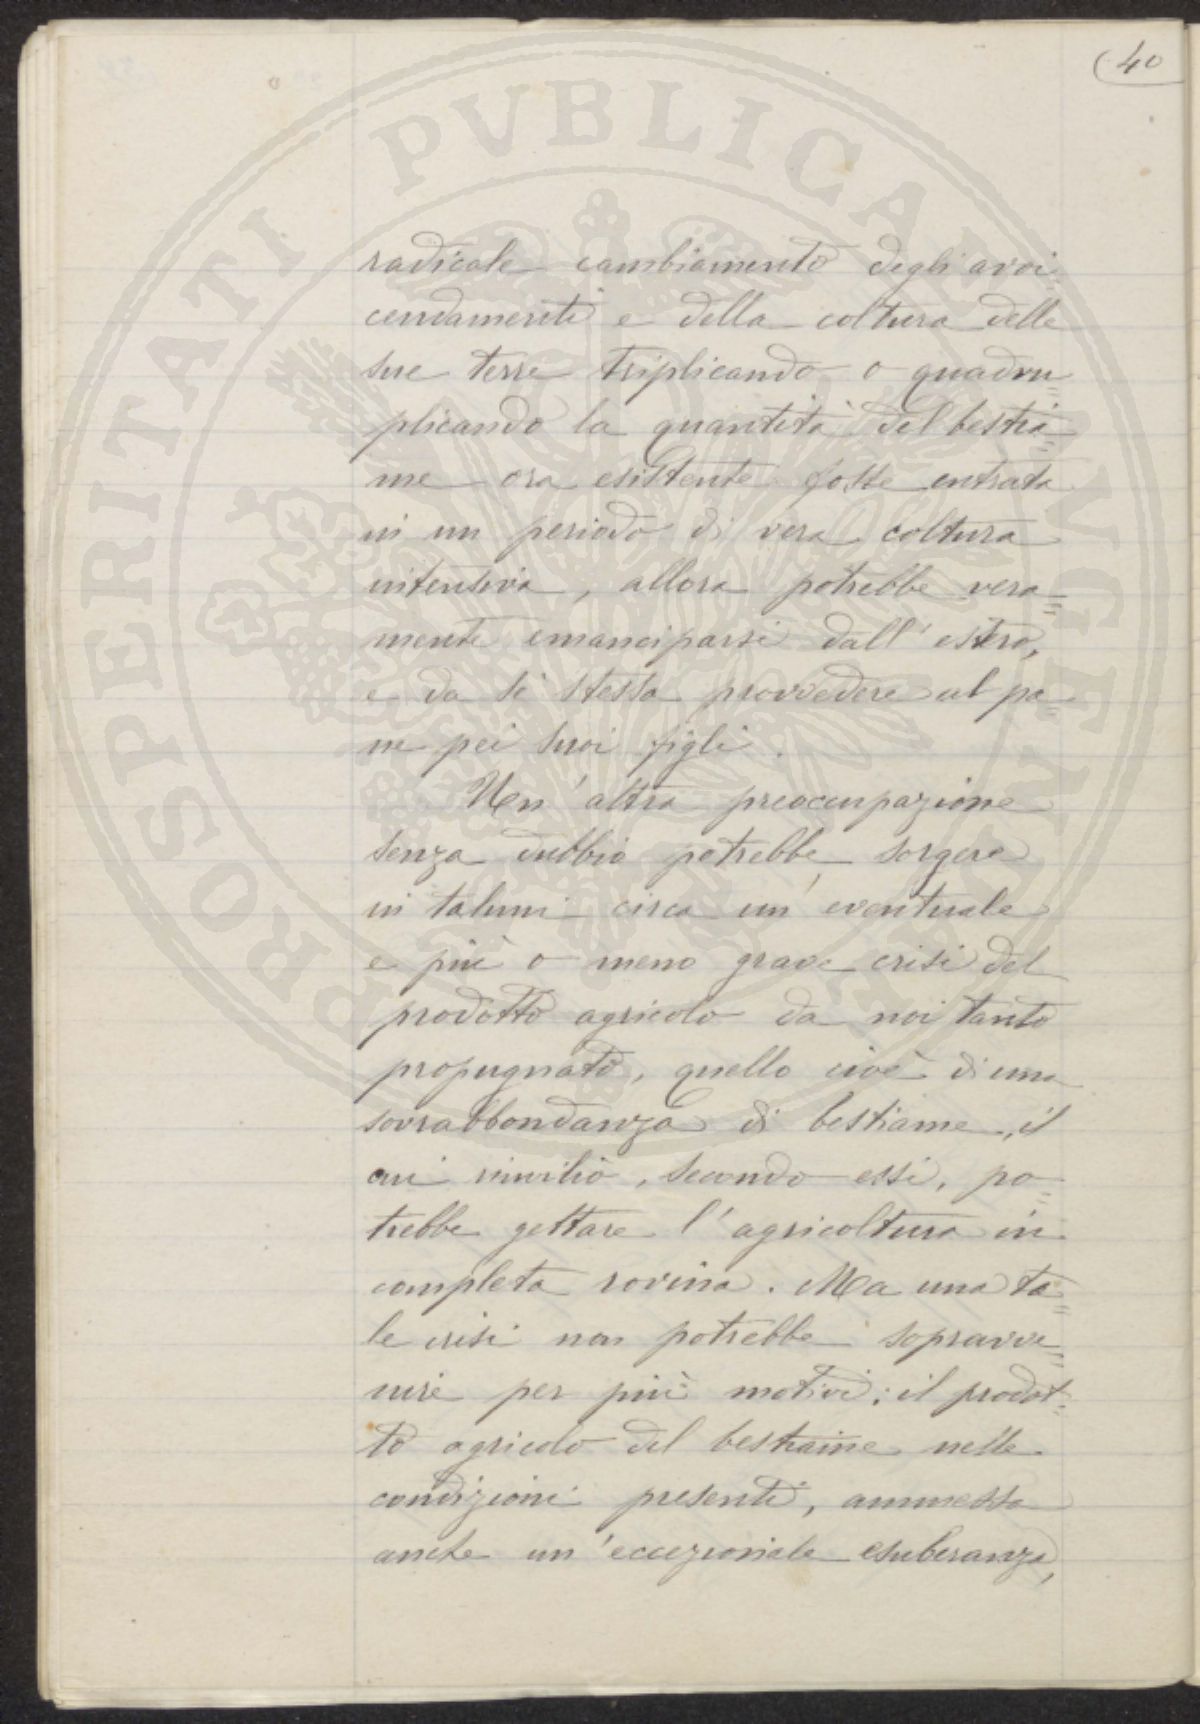 40
radicale cambiamento degli avvi-
cendamenti e della coltura delle
sue terre triplicando o quadru=
plicando la quantità del bestia=
me ora esistente fosse entrata
in un periodo di vera coltura
intensiva, allora potrebbe vera=
mente emanciparsi dall'estero,
e da sè stessa provvedere al pa=
ne pei suoi figli.
Un'altra preoccupazione
senza dubbio potrebbe sorgere
in taluni circa un'eventuale
e più o meno grave crisi del
prodotto agricolo da noi tanto
propugnato, quello cioè di una
sovrabbondanza di bestiame, il
cui rinvilio, secondo essi, po=
trebbe gettare l'agricoltura in
completa rovina. Ma una ta=
le crisi non potrebbe sopravve=
nire per più motivi: il prodot=
to agricolo del bestiame nelle
condizioni presenti, ammessa
anche un'eccezionale esuberanza,
PROSPERITATI PVBLICAE AVGENDAE